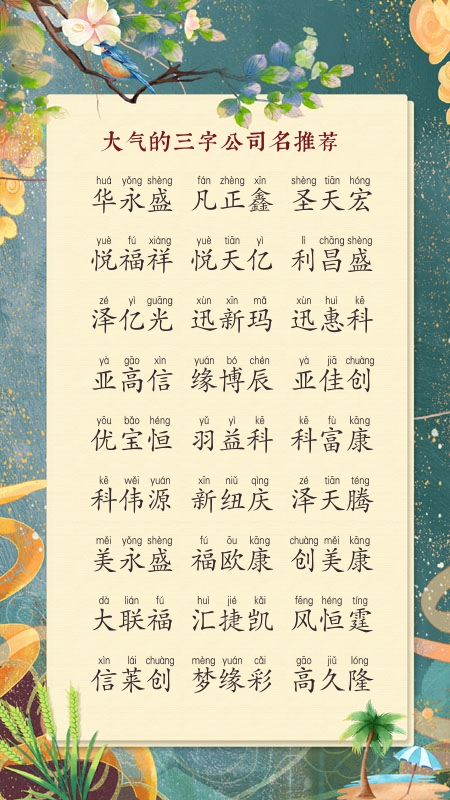 大气的三字公司名推荐
huá yǒng shèng fán zhèng xīn shèng tiān hóng
华永盛 凡正鑫 圣天宏
yuè fú xiáng yuè tiān yì lì chāng shèng
悦福祥 悦天亿 利昌盛
zé yì guāng xùn xīn mǎ xùn huì kē
泽亿光 迅新玛 迅惠科
yà gāo xìn yuán bó chén yà jiā chuàng
亚高信 缘博辰 亚佳创
yōu bǎo héng yǔ yì kē kē fù kāng
优宝恒 羽益科 科富康
kē wěi yuán xīn niǔ qìng zé tiān téng
科伟源 新纽庆 泽天腾
měi yǒng shèng fú ōu kāng chuàng měi kāng
美永盛 福欧康 创美康
dà lián fú huì jié kǎi fēng héng tíng
大联福 汇捷凯 风恒霆
xìn lái chuàng mèng yuán cǎi gāo jiǔ lóng
信莱创 梦缘彩 高久隆